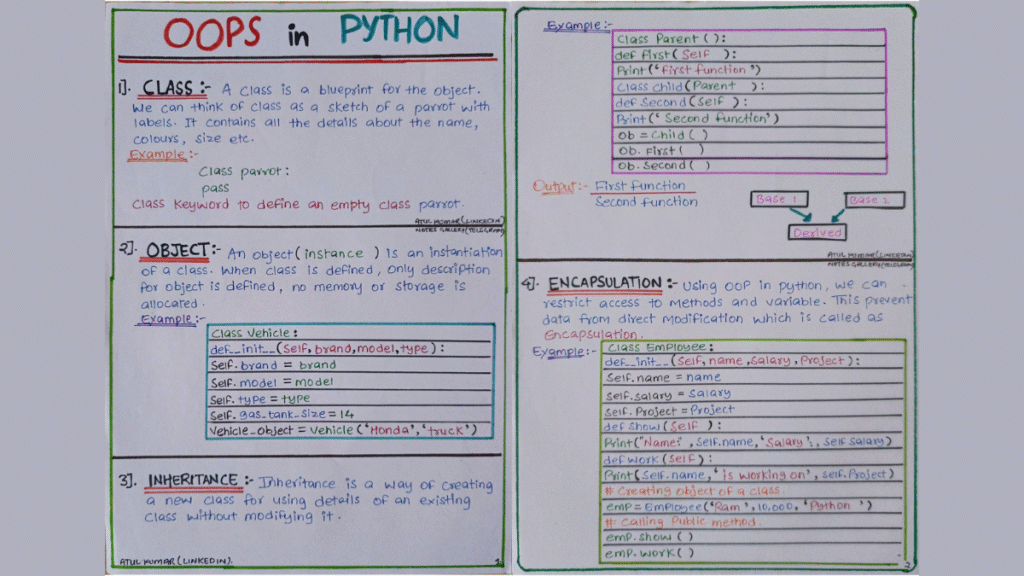 OOPS in PYTHON
1]. CLASS :- A class is a blueprint for the object.
We can think of class as a sketch of a parrot with
labels. It contains all the details about the name,
colours, size etc.
Example :-
Class parrot :
pass
Class keyword to define an empty class parrot.
ATUL KUMAR (LINKEDIN)
NOTES GALLERY (TELEGRAM)
2]. OBJECT :- An object (instance ) is an instantiation
of a class. When class is defined, only description
for object is defined, no memory or storage is
allocated.
Example :-
Class Vehicle :
def__init__(Self, brand, model, type ) :
Self. brand = brand
Self. model = model
Self. type = type
Self. gas_tank_size = 14
Vehicle_object = Vehicle ('Honda', 'truck')
3]. INHERITANCE :- Inheritance is a way of creating
a new class for using details of an existing
class without modifying it.
ATUL KUMAR (LINKEDIN).
1
Example :-
Class Parent ( ) :
def First ( Self ) :
Print ('First function ')
Class Child (Parent ) :
def Second (Self ) :
Print (' Second function')
Ob = Child ( )
Ob. First ( )
Ob. Second ( )
Output :- First function
Second function
Base 1
Base 2
Derived
ATUL KUMAR (LINKEDIN)
NOTES GALLERY (TELEGRAM)
4]. ENCAPSULATION :- Using OOP in python, we can
restrict access to Methods and variable. This prevent
data from direct modification which is called as
Encapsulation.
Example :-
Class Employee :
def__init__(Self, name, Salary, Project ) :
Self. name = name
Self. salary = Salary
Self. Project = Project
def Show (Self ) :
Print ("Name: , Self.name, 'Salary': , Self Salary)
def work (Self ) :
Print (Self.name, ' is working on', self. Project)
# Creating object of a class.
emp = Employee ('Ram', 10,000, 'Python ')
# Calling Public method.
emp. Show ( )
emp. work ( )
2